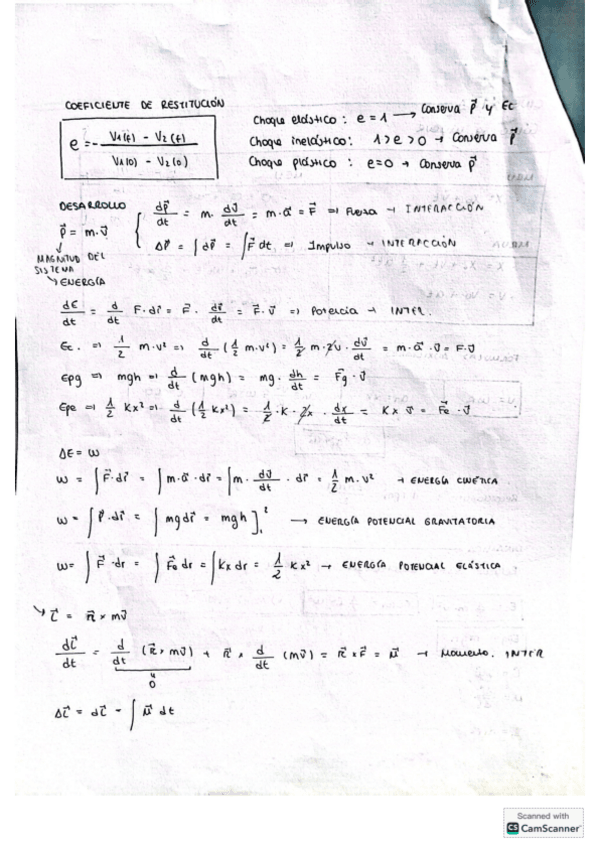 COEFICIENTE DE RESTITUCIÓN
e = - (V1(f) - V2(f)) / (V1(0) - V2(0))
Choque elástico : e = 1 → Conserva p⃗ y Ec
Choque inelástico : 1 > e > 0 → Conserva p⃗
Choque plástico : e=0 → Conserva p⃗
DESARROLLO
p⃗ = m·v⃗
↓
MAGNITUD DEL
SISTEMA
dp⃗/dt = m · dv⃗/dt = m·a⃗ = F⃗ ⇒ Fuerza → INTERACCIÓN
Δp⃗ = ∫dp⃗ = ∫F⃗ dt ⇒ Impulso → INTERACCIÓN
↘ ENERGÍA
dE/dt = d/dt F·dr⃗ = F⃗ · dr⃗/dt = F⃗·v⃗ ⇒ Potencia → INTER.
Ec. ⇒ 1/2 m·v² ⇒ d/dt (1/2 m·v²) = 1/2 m·2v · dv⃗/dt = m·a⃗ ·v⃗ = F·v
Epg ⇒ mgh ⇒ d/dt (mgh) = mg· dh/dt = F⃗g·v⃗
Epe ⇒ 1/2 Kx² ⇒ d/dt (1/2 Kx²) = 1/2 · K · 2x · dx/dt = Kx v⃗ = F⃗e · v⃗
ΔE = W
W = ∫F⃗·dr⃗ = ∫m·a⃗·dr⃗ = ∫m· dv⃗/dt · dr⃗ = 1/2 m·v² → ENERGÍA CINÉTICA.
W = ∫P⃗·dr⃗ = ∫mgdr⃗ = mgh]₁² → ENERGÍA POTENCIAL GRAVITATORIA
W= ∫F⃗·dr = ∫F⃗e dr = ∫Kx dr = 1/2 Kx² → ENERGÍA POTENCIAL ELÁSTICA
↘ L⃗ = R⃗ × mv⃗
dL⃗/dt = d/dt (R⃗ × mv⃗) + R⃗ × d/dt (mv⃗) = R⃗ × F⃗ = M⃗ → Momento. INTER
0
ΔL⃗ = dL⃗ - ∫M⃗ dt
Scanned with
CS CamScanner